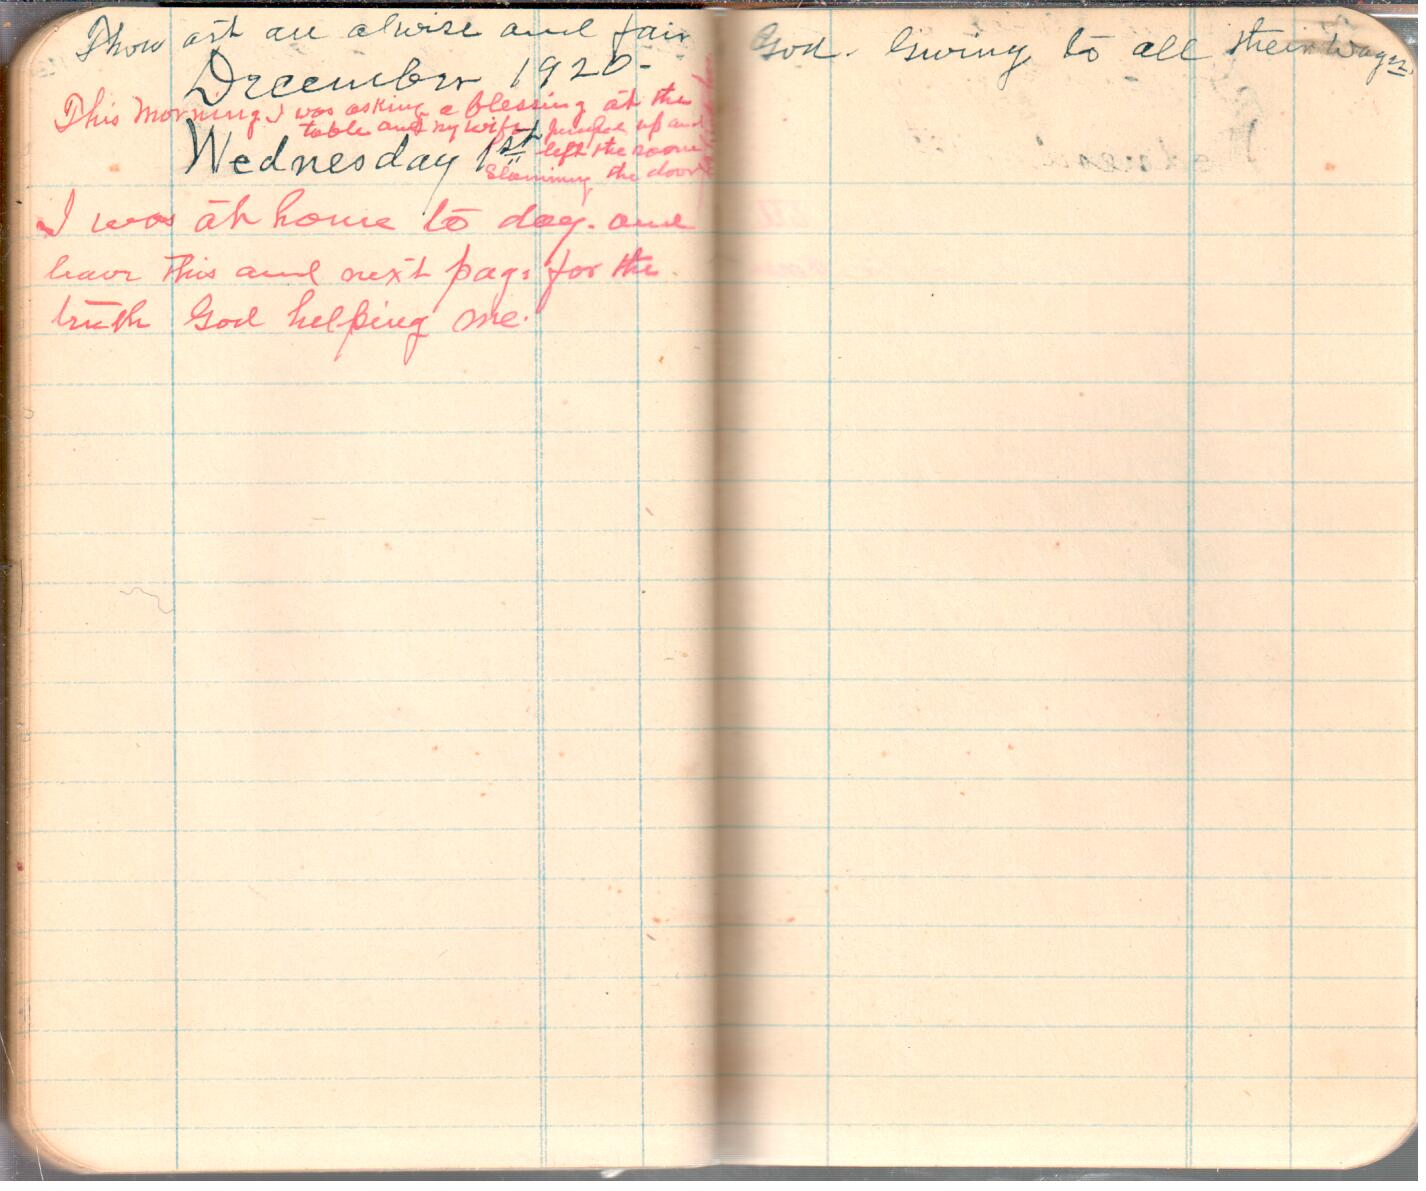 Thou art an alwise and fair God. Giving to all their wages
December 1920-
This Morning I was asking a blessing at the
table and my wife jumped up and
left the room
Slamming the door
Wednesday 1st
I was at home to day. and
leave this and next page for the
truth God helping me.